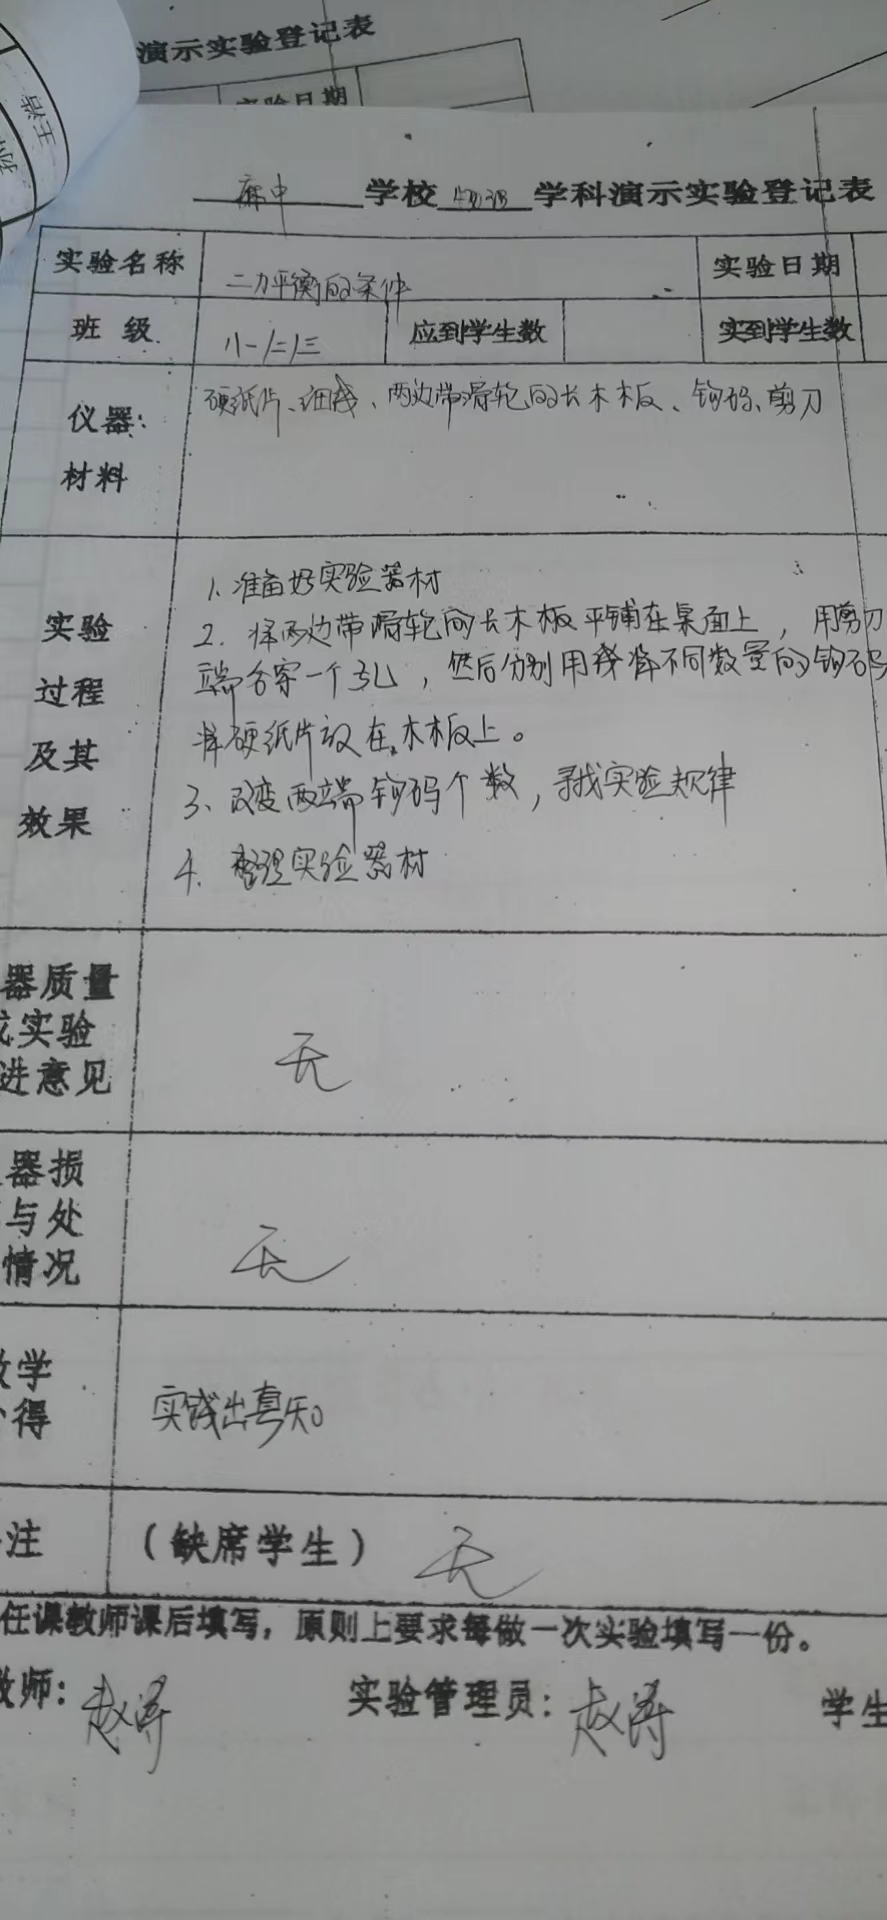 演示实验登记表
实验日期
王浩
麻中 学校 物理 学科演示实验登记表
实验名称 二力平衡的条件 实验日期
班级 八一/二/三 应到学生数 实到学生数
仪器: 硬纸片、细线、两边带滑轮的长木板、钩码、剪刀
材料
1、准备好实验器材
实验 2、将两边带滑轮的长木板平铺在桌面上，用剪刀
过程 端各穿一个孔，然后分别用线将不同数量的钩码
及其 将硬纸片放在木板上。
效果 3、改变两端钩码个数，寻找实验规律
4、整理实验器材
器质量
或实验
进意见 无
器损
与处
情况 无
教学
得 实践出真知
注 (缺席学生) 无
任课教师课后填写，原则上要求每做一次实验填写一份。
教师: 赵涛 实验管理员: 赵涛 学生